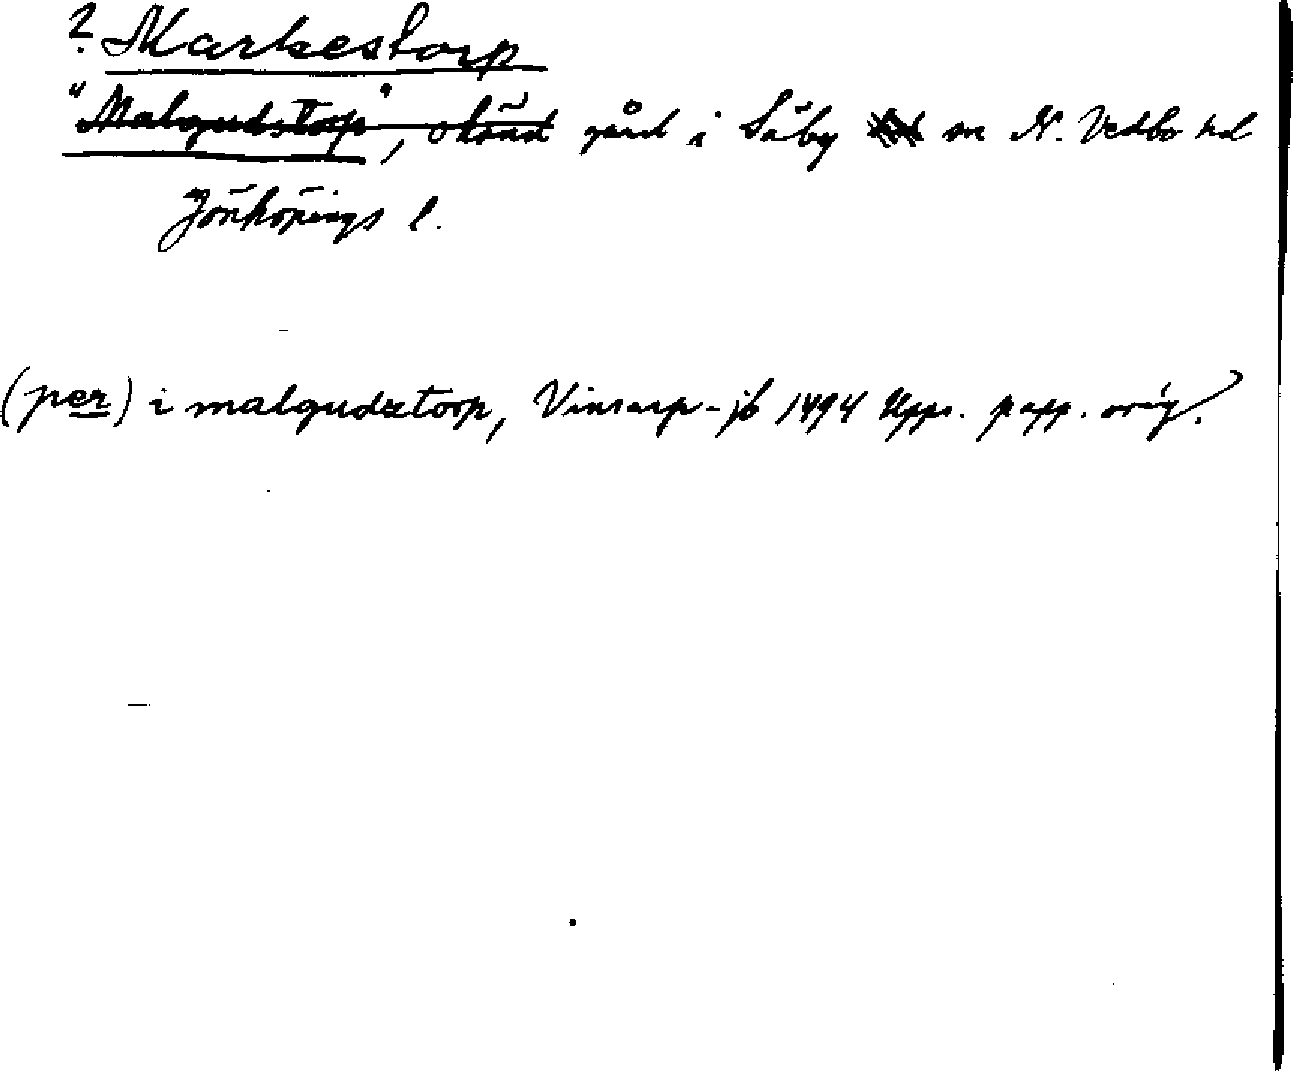 ? Markestorp
"Malgudstorp", okänd gård i Säby sn N. Vedbo hd
Jönköpings l.
(per) i malgudztorp, Vinsarp-jb 1494 Upps. papp. orig.